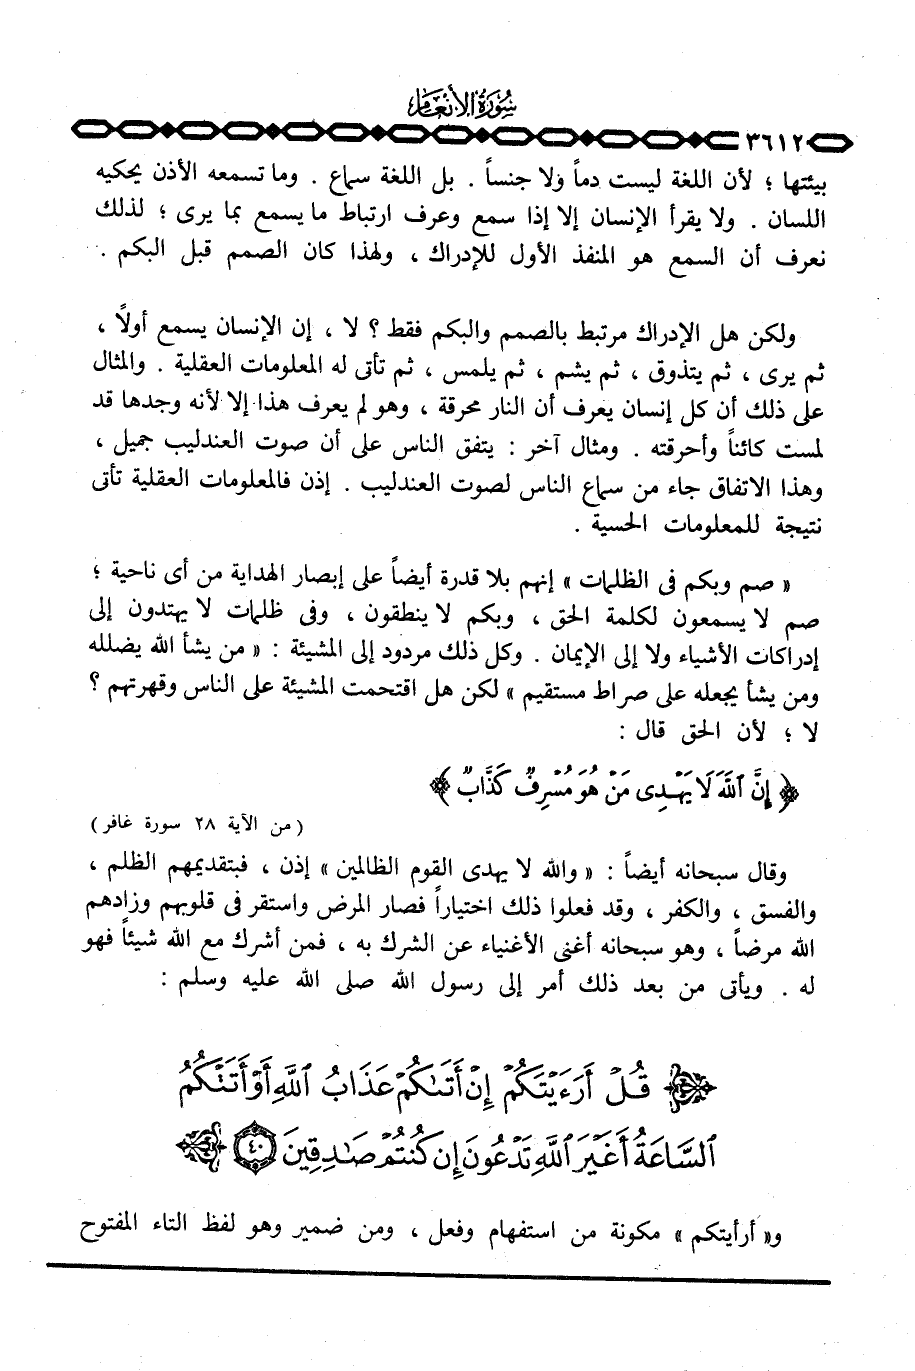 سُورَةُ الأَنْعَامِ
٣٦١٢
بيئتها ؛ لأن اللغة ليست دماً ولا جنساً . بل اللغة سماع . وما تسمعه الأذن يحكيه
اللسان . ولا يقرأ الإنسان إلا إذا سمع وعرف ارتباط ما يسمع بما يرى ؛ لذلك
نعرف أن السمع هو المنفذ الأول للإدراك ، ولهذا كان الصمم قبل البكم .
ولكن هل الإدراك مرتبط بالصمم والبكم فقط ؟ لا ، إن الإنسان يسمع أولاً ،
ثم يرى ، ثم يتذوق ، ثم يشم ، ثم يلمس ، ثم تأتى له المعلومات العقلية . والمثال
على ذلك أن كل إنسان يعرف أن النار محرقة ، وهو لم يعرف هذا إلا لأنه وجدها قد
لمست كائناً وأحرقته . ومثال آخر : يتفق الناس على أن صوت العندليب جميل ،
وهذا الاتفاق جاء من سماع الناس لصوت العندليب . إذن فالمعلومات العقلية تأتى
نتيجة للمعلومات الحسية .
« صم وبكم فى الظلمات » إنهم بلا قدرة أيضاً على إبصار الهداية من أى ناحية ؛
صم لا يسمعون لكلمة الحق ، وبكم لا ينطقون ، وفى ظلمات لا يهتدون إلى
إدراكات الأشياء ولا إلى الإيمان . وكل ذلك مردود إلى المشيئة : « من يشأ الله يضلله
ومن يشأ يجعله على صراط مستقيم » لكن هل اقتحمت المشيئة على الناس وقهرتهم ؟
لا ؛ لأن الحق قال :
﴿ إِنَّ ٱللَّهَ لَا يَهْدِى مَنْ هُوَ مُسْرِفٌ كَذَّابٌ ﴾
( من الآية ٢٨ سورة غافر )
وقال سبحانه أيضاً : « والله لا يهدى القوم الظالمين » إذن ، فبتقديمهم الظلم ،
والفسق ، والكفر ، وقد فعلوا ذلك اختياراً فصار المرض واستقر فى قلوبهم وزادهم
الله مرضاً ، وهو سبحانه أغنى الأغنياء عن الشرك به ، فمن أشرك مع الله شيئاً فهو
له . ويأتى من بعد ذلك أمر إلى رسول الله صلى الله عليه وسلم :
﴿ قُلْ أَرَءَيْتَكُمْ إِنْ أَتَىٰكُمْ عَذَابُ ٱللَّهِ أَوْ أَتَتْكُمُ
ٱلسَّاعَةُ أَغَيْرَ ٱللَّهِ تَدْعُونَ إِن كُنتُمْ صَـٰدِقِينَ ٤٠ ﴾
و« أرأيتكم » مكونة من استفهام وفعل ، ومن ضمير وهو لفظ التاء المفتوح